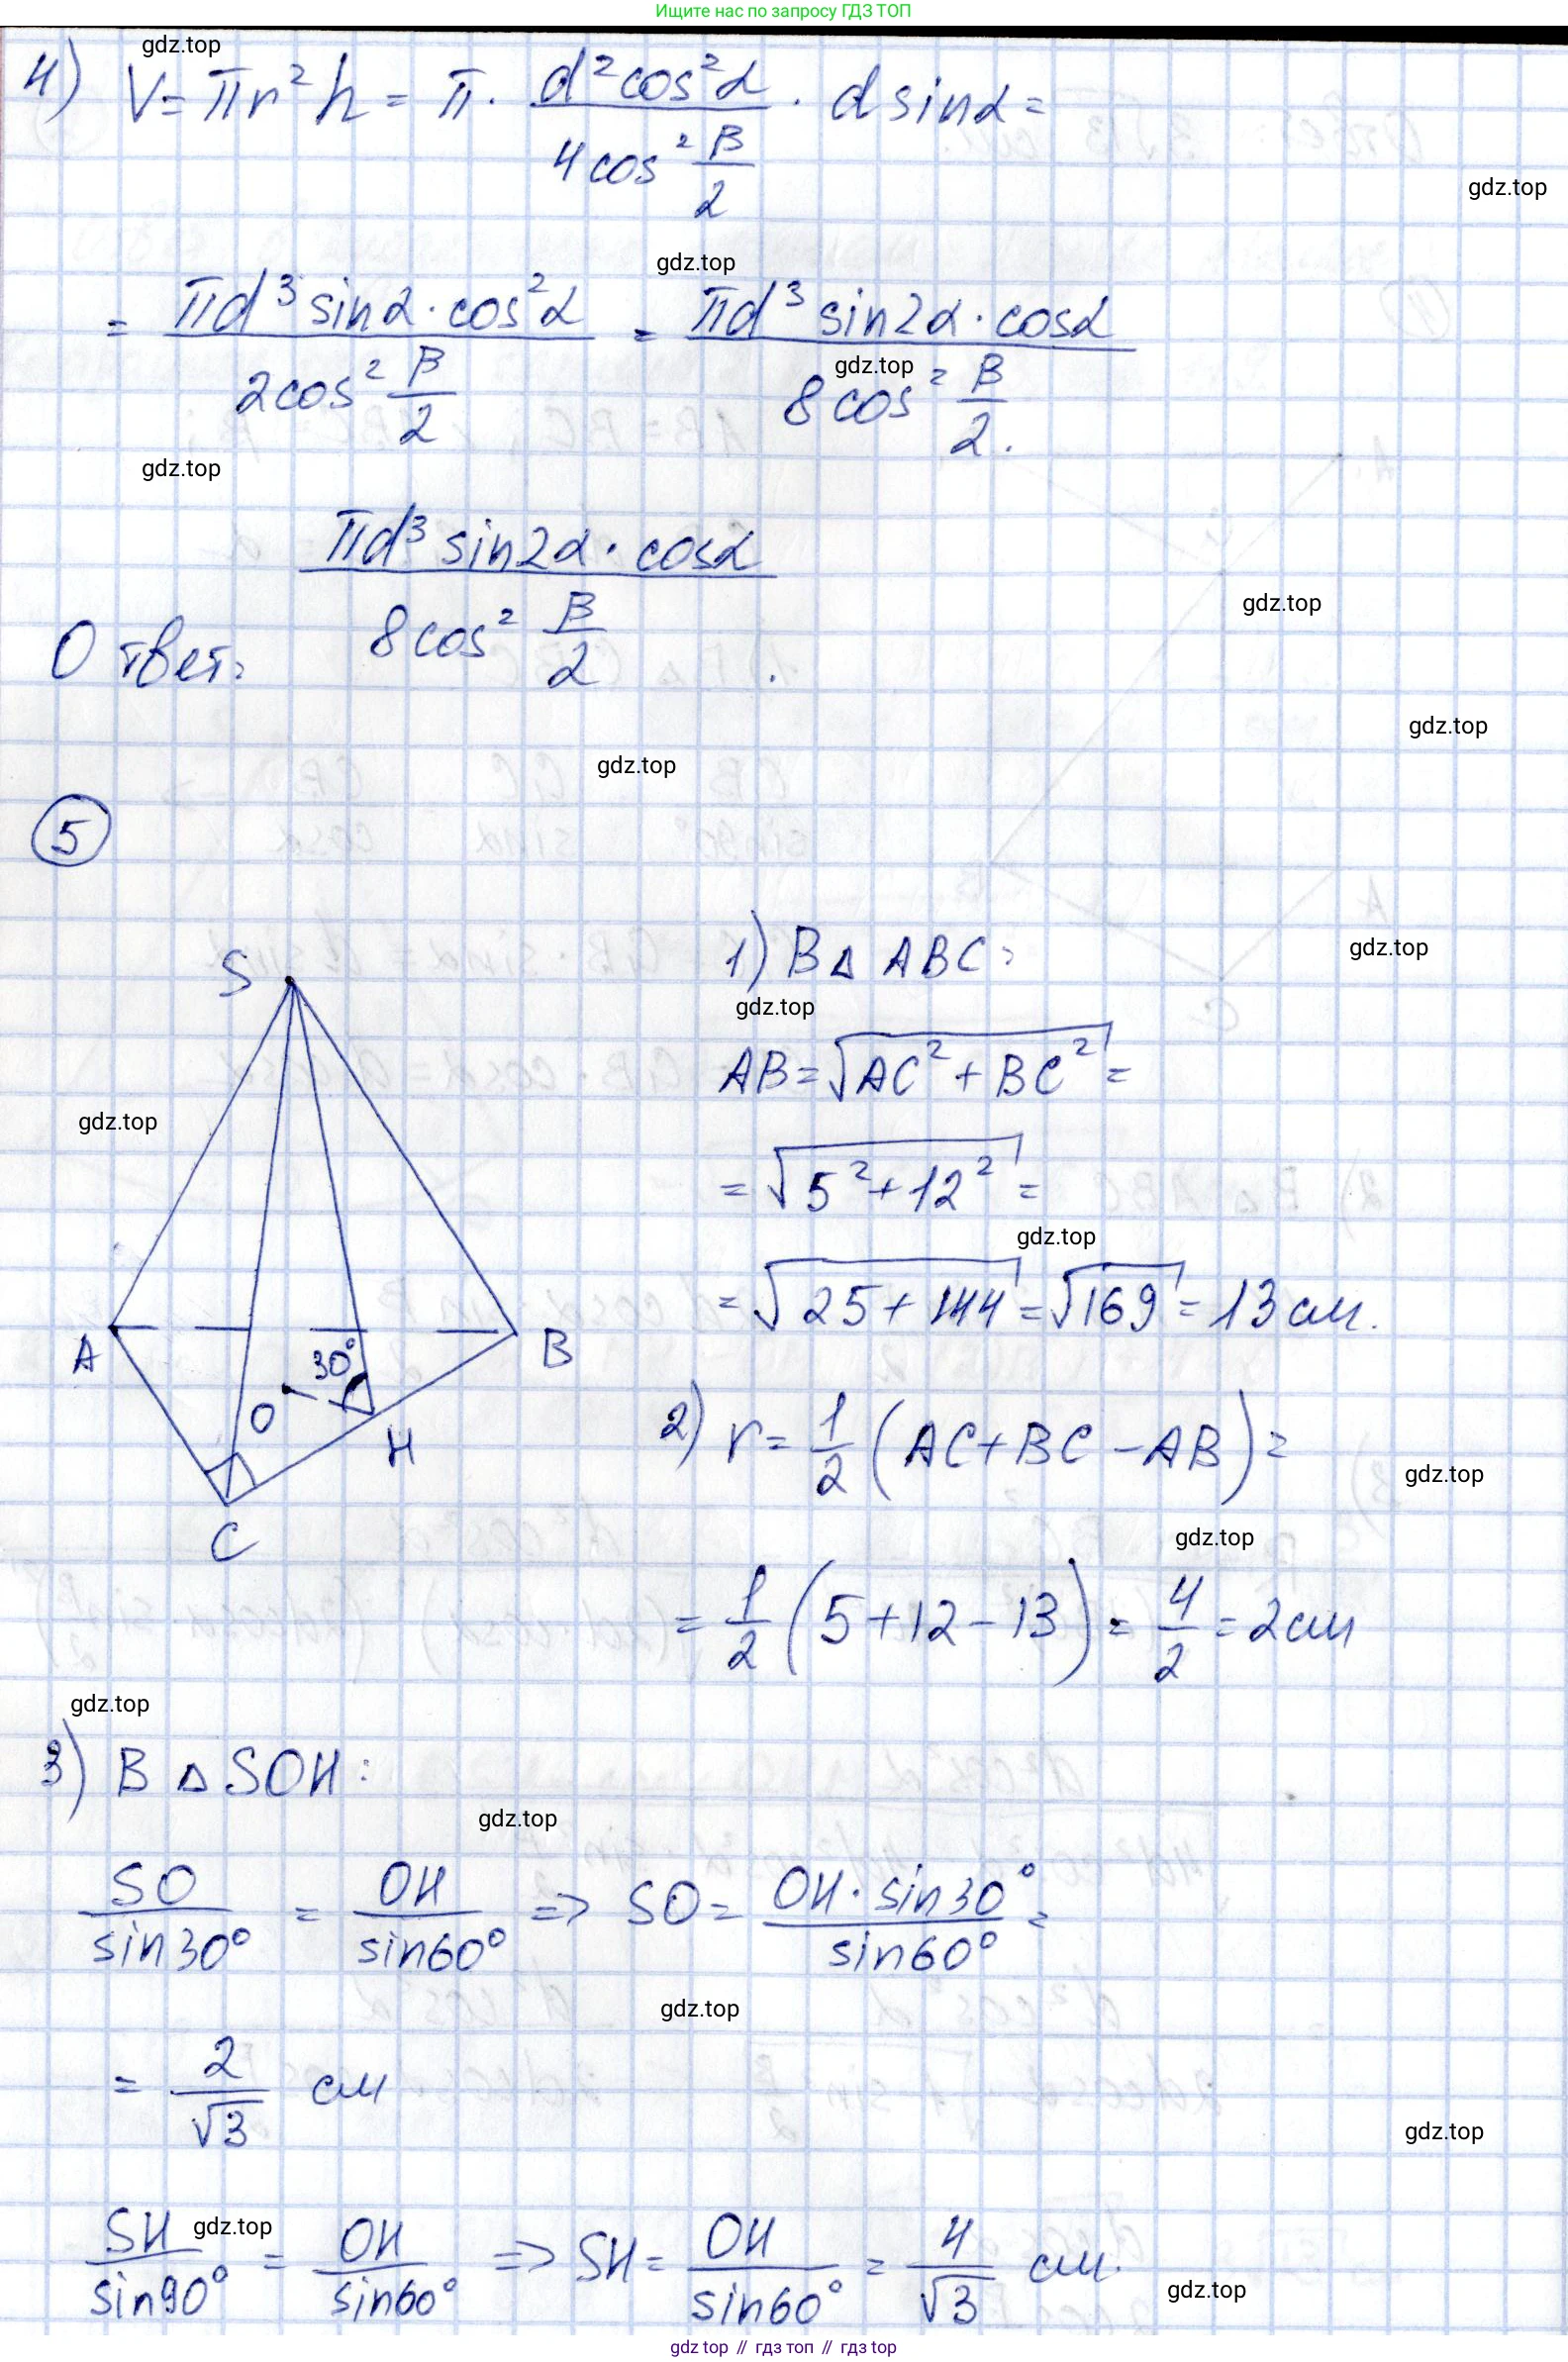 Ищите нас по запросу ГДЗ ТОП
gdz.top
4) V = πr² h = π · d² cos² α / 4 cos² β/2 · d sin α =
gdz.top
gdz.top
= πd³ sin α · cos² α / 2 cos² β/2 = πd³ sin 2α · cos α / 8 cos² β/2 .
gdz.top
gdz.top
πd³ sin 2α · cos α
gdz.top
Ответ: 8 cos² β/2 .
gdz.top
gdz.top
5
1) В Δ ABC:
gdz.top
S
gdz.top
AB = √(AC² + BC²) =
gdz.top
= √(5² + 12²) =
gdz.top
= √(25 + 144) = √169 = 13 см.
A
B
30°
O
H
2) r = 1/2 (AC + BC − AB) =
gdz.top
C
gdz.top
= 1/2 (5 + 12 − 13) = 4/2 = 2 см
gdz.top
3) В Δ SOH:
gdz.top
SO / sin 30° = OH / sin 60° => SO = OH · sin 30° / sin 60° =
gdz.top
= 2 / √3 см
gdz.top
SH / sin 90° = OH / sin 60° => SH = OH / sin 60° = 4 / √3 см.
gdz.top
gdz.top
gdz top // гдз топ // гдз top